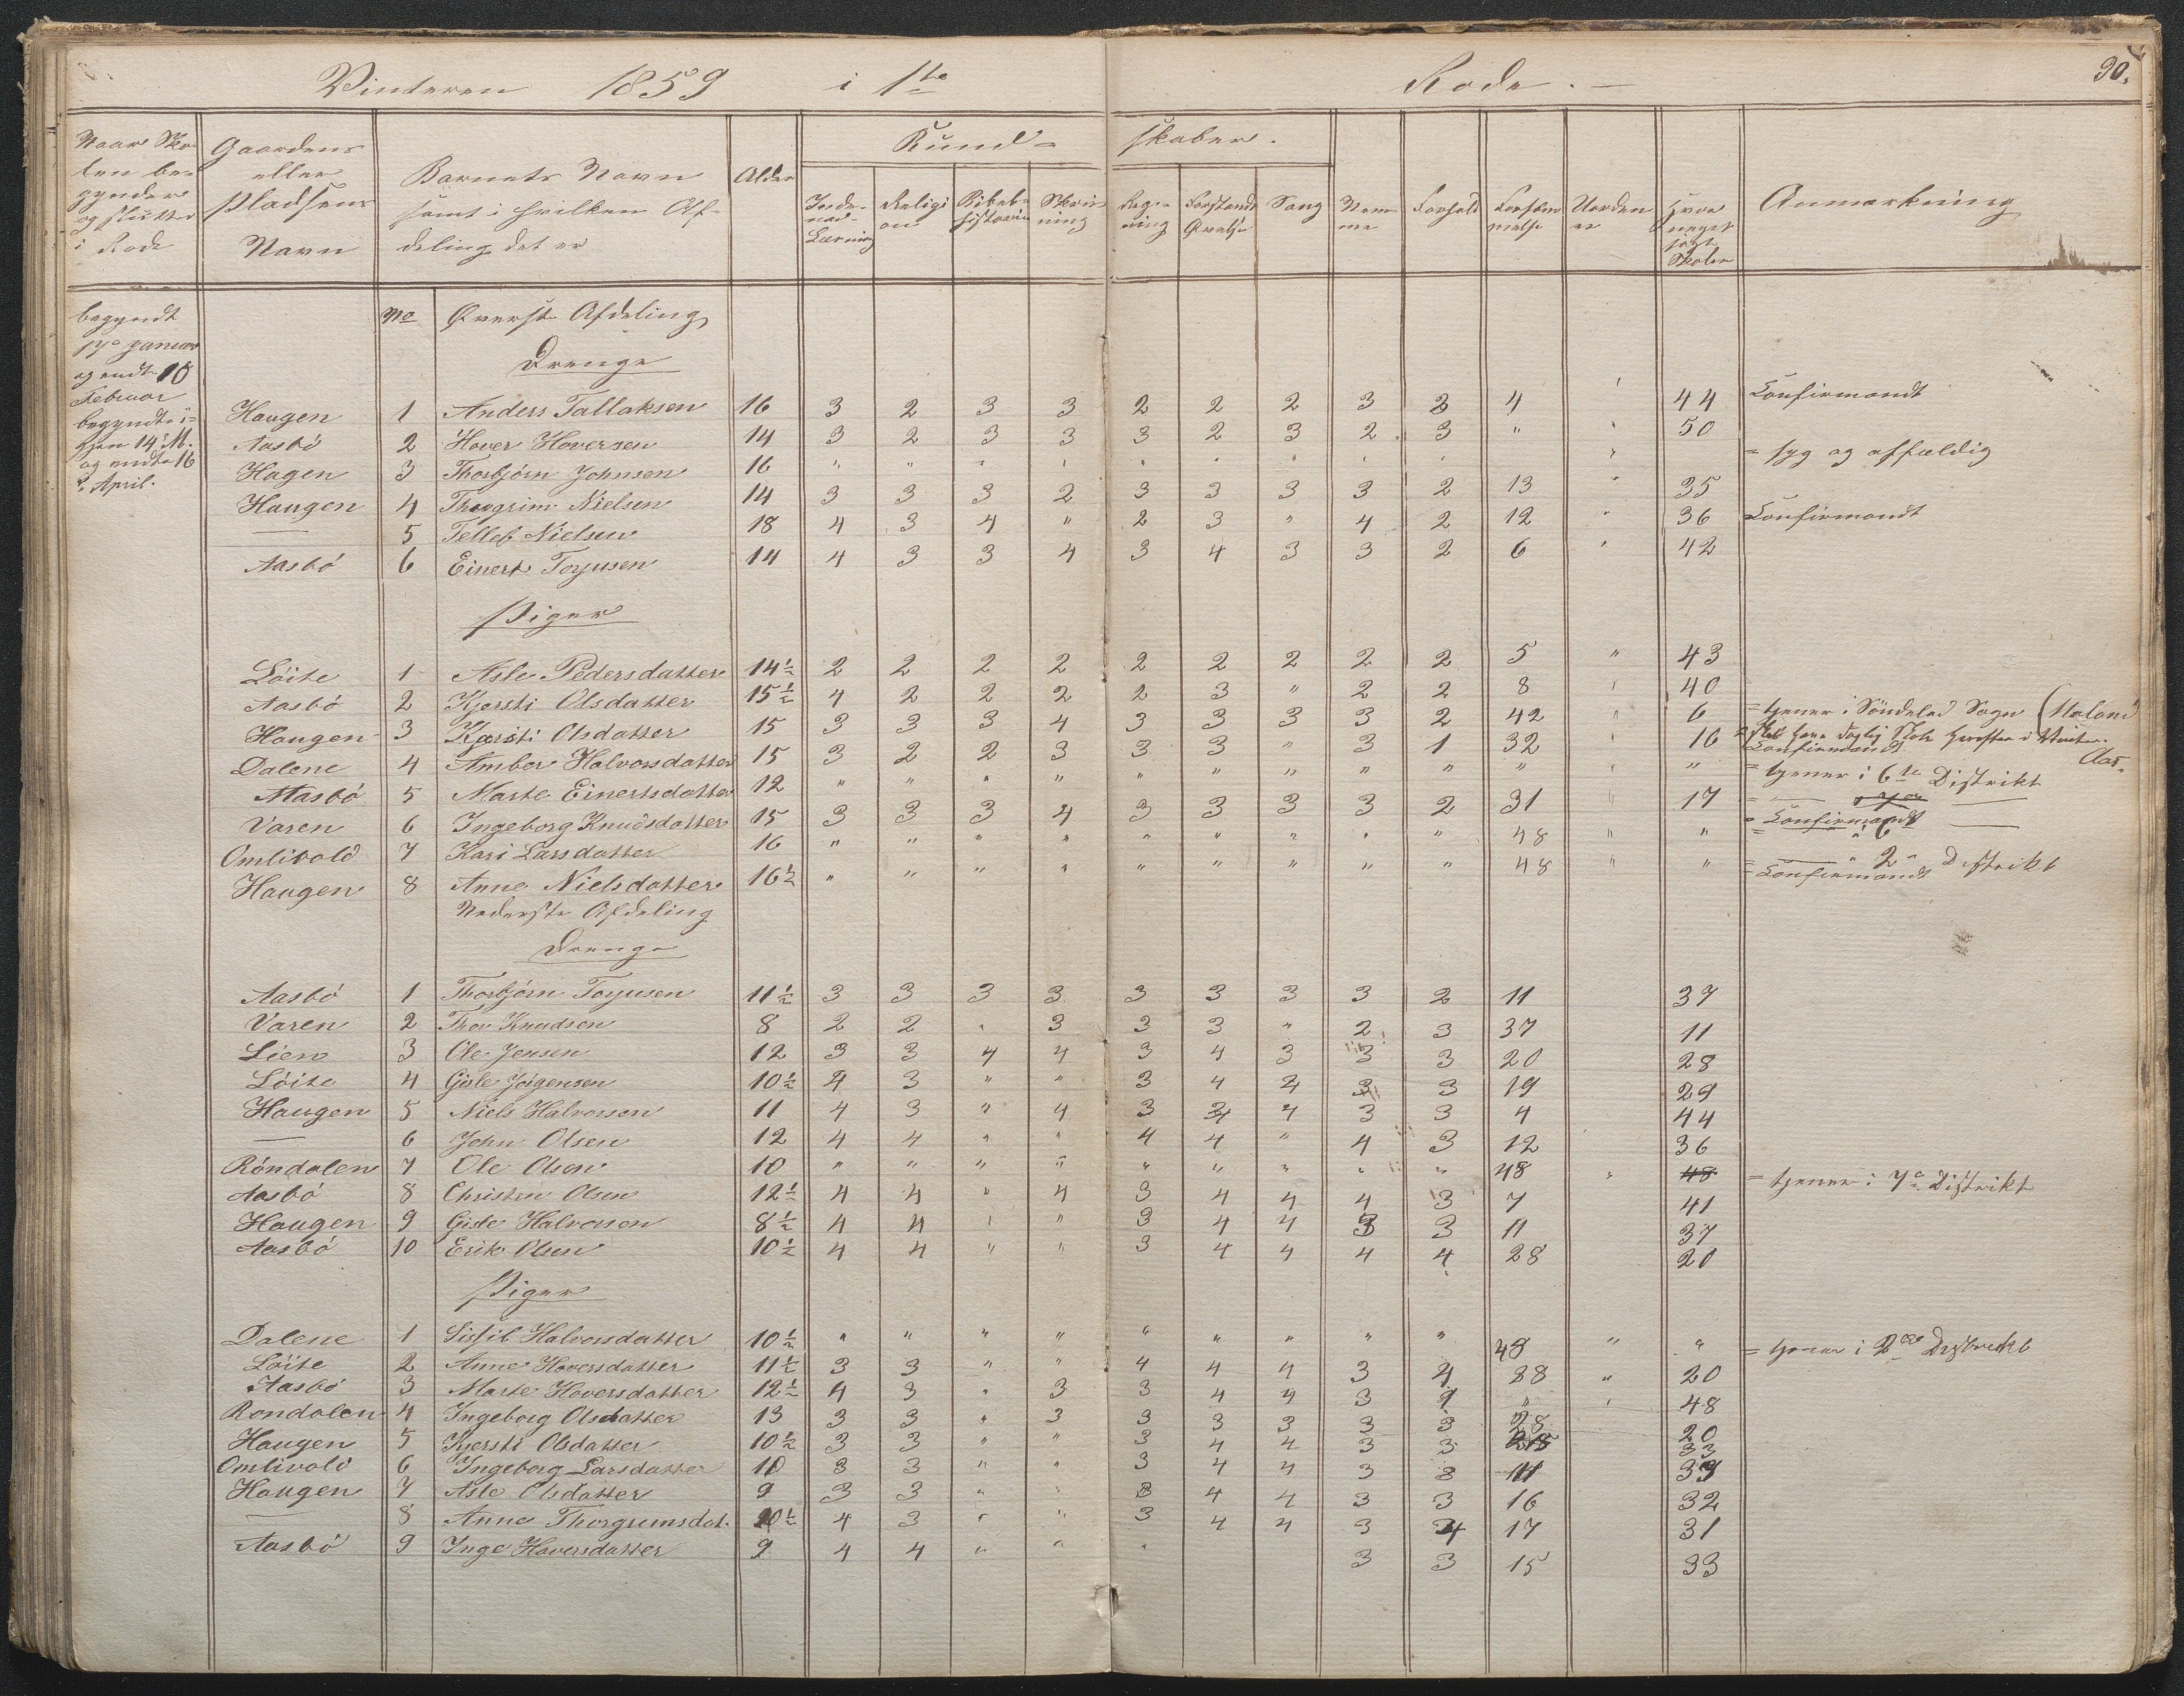 Vinteren 1859 i 1te Rode. 90.
Naar Skolen begynder og slutter i Rode | Gaardens eller Pladsens Navn | Barnets Navn samt i hvilken Afdeling det er | Alder | Kundskaber. | Anmærkning
Religion | Bibelhistorie | Skrivning | Regning | Forstands Øvelse | Sang | Nemme | Forhold | Forsømmelse | Uorden | Hvor meget søgt Skolen
begyndt 17de Januar og endt 18 Februar begyndte igjen 14 M. og endte 16 April.
No Øverste Afdeling
Drenge
Haugen 1 Anders Tallaksen 16 3 2 3 3 2 2 2 3 3 4 44 Confirmandt
Aasbö 2 Hover Hoversen 14 3 2 3 3 3 2 3 2 3 " " 50
Hagen 3 Thorbjörn Johnsen 16 " " " " " " " " " " = syg og affældig
Haugen 4 Thorgrim Nielsen 14 3 3 3 2 3 3 3 3 2 13 " 35
— 5 Telleb Nielsen 18 4 3 4 " 2 3 " 4 2 12 " 36 Confirmandt
Aasbö 6 Einert Torjusen 14 4 3 3 4 3 4 3 3 2 6 " 42
Piger
Löite 1 Asle Pedersdatter 14½ 2 2 2 2 2 2 2 2 2 5 " 43
Aasbö 2 Kjersti Olsdatter 15½ 4 2 2 2 2 3 " 2 2 8 " 40
Haugen 3 Kjersti Olsdatter 15 3 3 3 4 3 3 3 3 2 42 " 6 = tjener i Söndeled Sogn
Dalene 4 Amber Halvorsdatter 15 3 2 2 3 3 3 " 3 1 32 " 16 Confirmandt
Aasbö 5 Marte Einertsdatter 12 " " " " " " " " " " " " = tjener i 6te Distrikt
Varen 6 Ingeborg Knudsdatter 15 3 3 3 4 3 3 3 3 2 31 " 17 = Confirmandt
Omlivold 7 Kari Larsdatter 16 " " " " " " " " " 48 " " = — " 6 —
Haugen 8 Anne Nielsdatter 16½ " " " " " " " " " 48 " " = — " 2 " Distrikt Confirmandt
Nederste Afdeling
Drenge
Aasbö 1 Thorbjörn Torjusen 11½ 3 3 3 3 3 3 3 3 2 11 37
Varen 2 Thor Knudsen 8 2 2 " 3 3 3 " 2 3 37 11
Lien 3 Ole Jensen 12 3 3 4 4 3 4 3 3 3 20 28
Löite 4 Gisle Jörgensen 10½ 4 3 " " 3 4 4 3 3 19 29
Haugen 5 Niels Halvorsen 11 4 3 " 4 3 4 4 3 3 4 44
— 6 John Olsen 12 4 4 " " 4 4 " 4 3 12 36
Röndalen 7 Ole Olsen 10 " " " " " " " " " 48 " 48 = tjener i 7e Distrikt
Aasbö 8 Christen Olsen 12½ 4 4 " 4 3 4 4 4 3 7 41
Haugen 9 Gisle Halvorsen 8½ 4 4 " " 3 4 4 3 3 11 37
Aasbö 10 Erik Olsen 10½ 4 4 " " 3 4 4 4 4 28 20
Piger
Dalene 1 Sissil Halvorsdatter 10½ " " " " " " " " " 48 " " = tjener i 2det Distrikt
Löite 2 Anne Hoversdatter 11½ 3 3 " " 4 4 4 3 4 28 " 20
Aasbö 3 Marte Hoversdatter 12½ 4 3 " 3 3 4 4 3 " " 48
Röndalen 4 Ingeborg Olsdatter 13 3 3 " 3 3 3 3 3 3 28 20
Haugen 5 Kjersti Olsdatter 10½ 3 3 " " 3 4 4 3 3 33
Omlivold 6 Ingeborg Larsdatter 10 3 3 " " 3 4 4 3 3
Haugen 7 Asle Olsdatter 9 3 3 " " 3 4 4 3 3 16 32
— 8 Anne Thorgrimsdat. 10½ 4 3 " " 3 4 4 3 4 17 31
Aasbö 9 Inge Hoversdatter 9 4 4 " " " 3 3 15 33